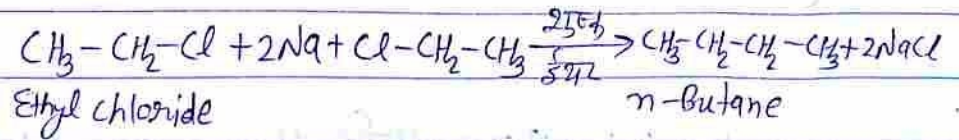 CH₃-CH₂-Cl + 2Na + Cl-CH₂-CH₃ $\xrightarrow[\text{ईथर}]{\text{शुष्क}}$ CH₃-CH₂-CH₂-CH₃ + 2NaCl
Ethyl chloride n-Butane